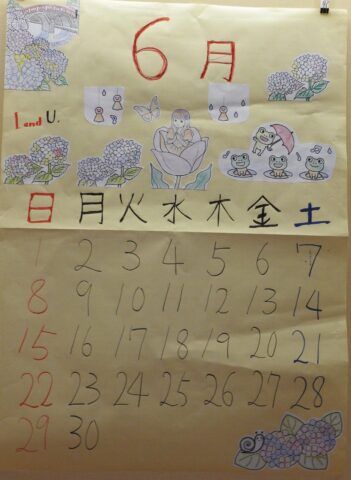 6月
I and U.
日 月 火 水 木 金 土
1 2 3 4 5 6 7
8 9 10 11 12 13 14
15 16 17 18 19 20 21
22 23 24 25 26 27 28
29 30